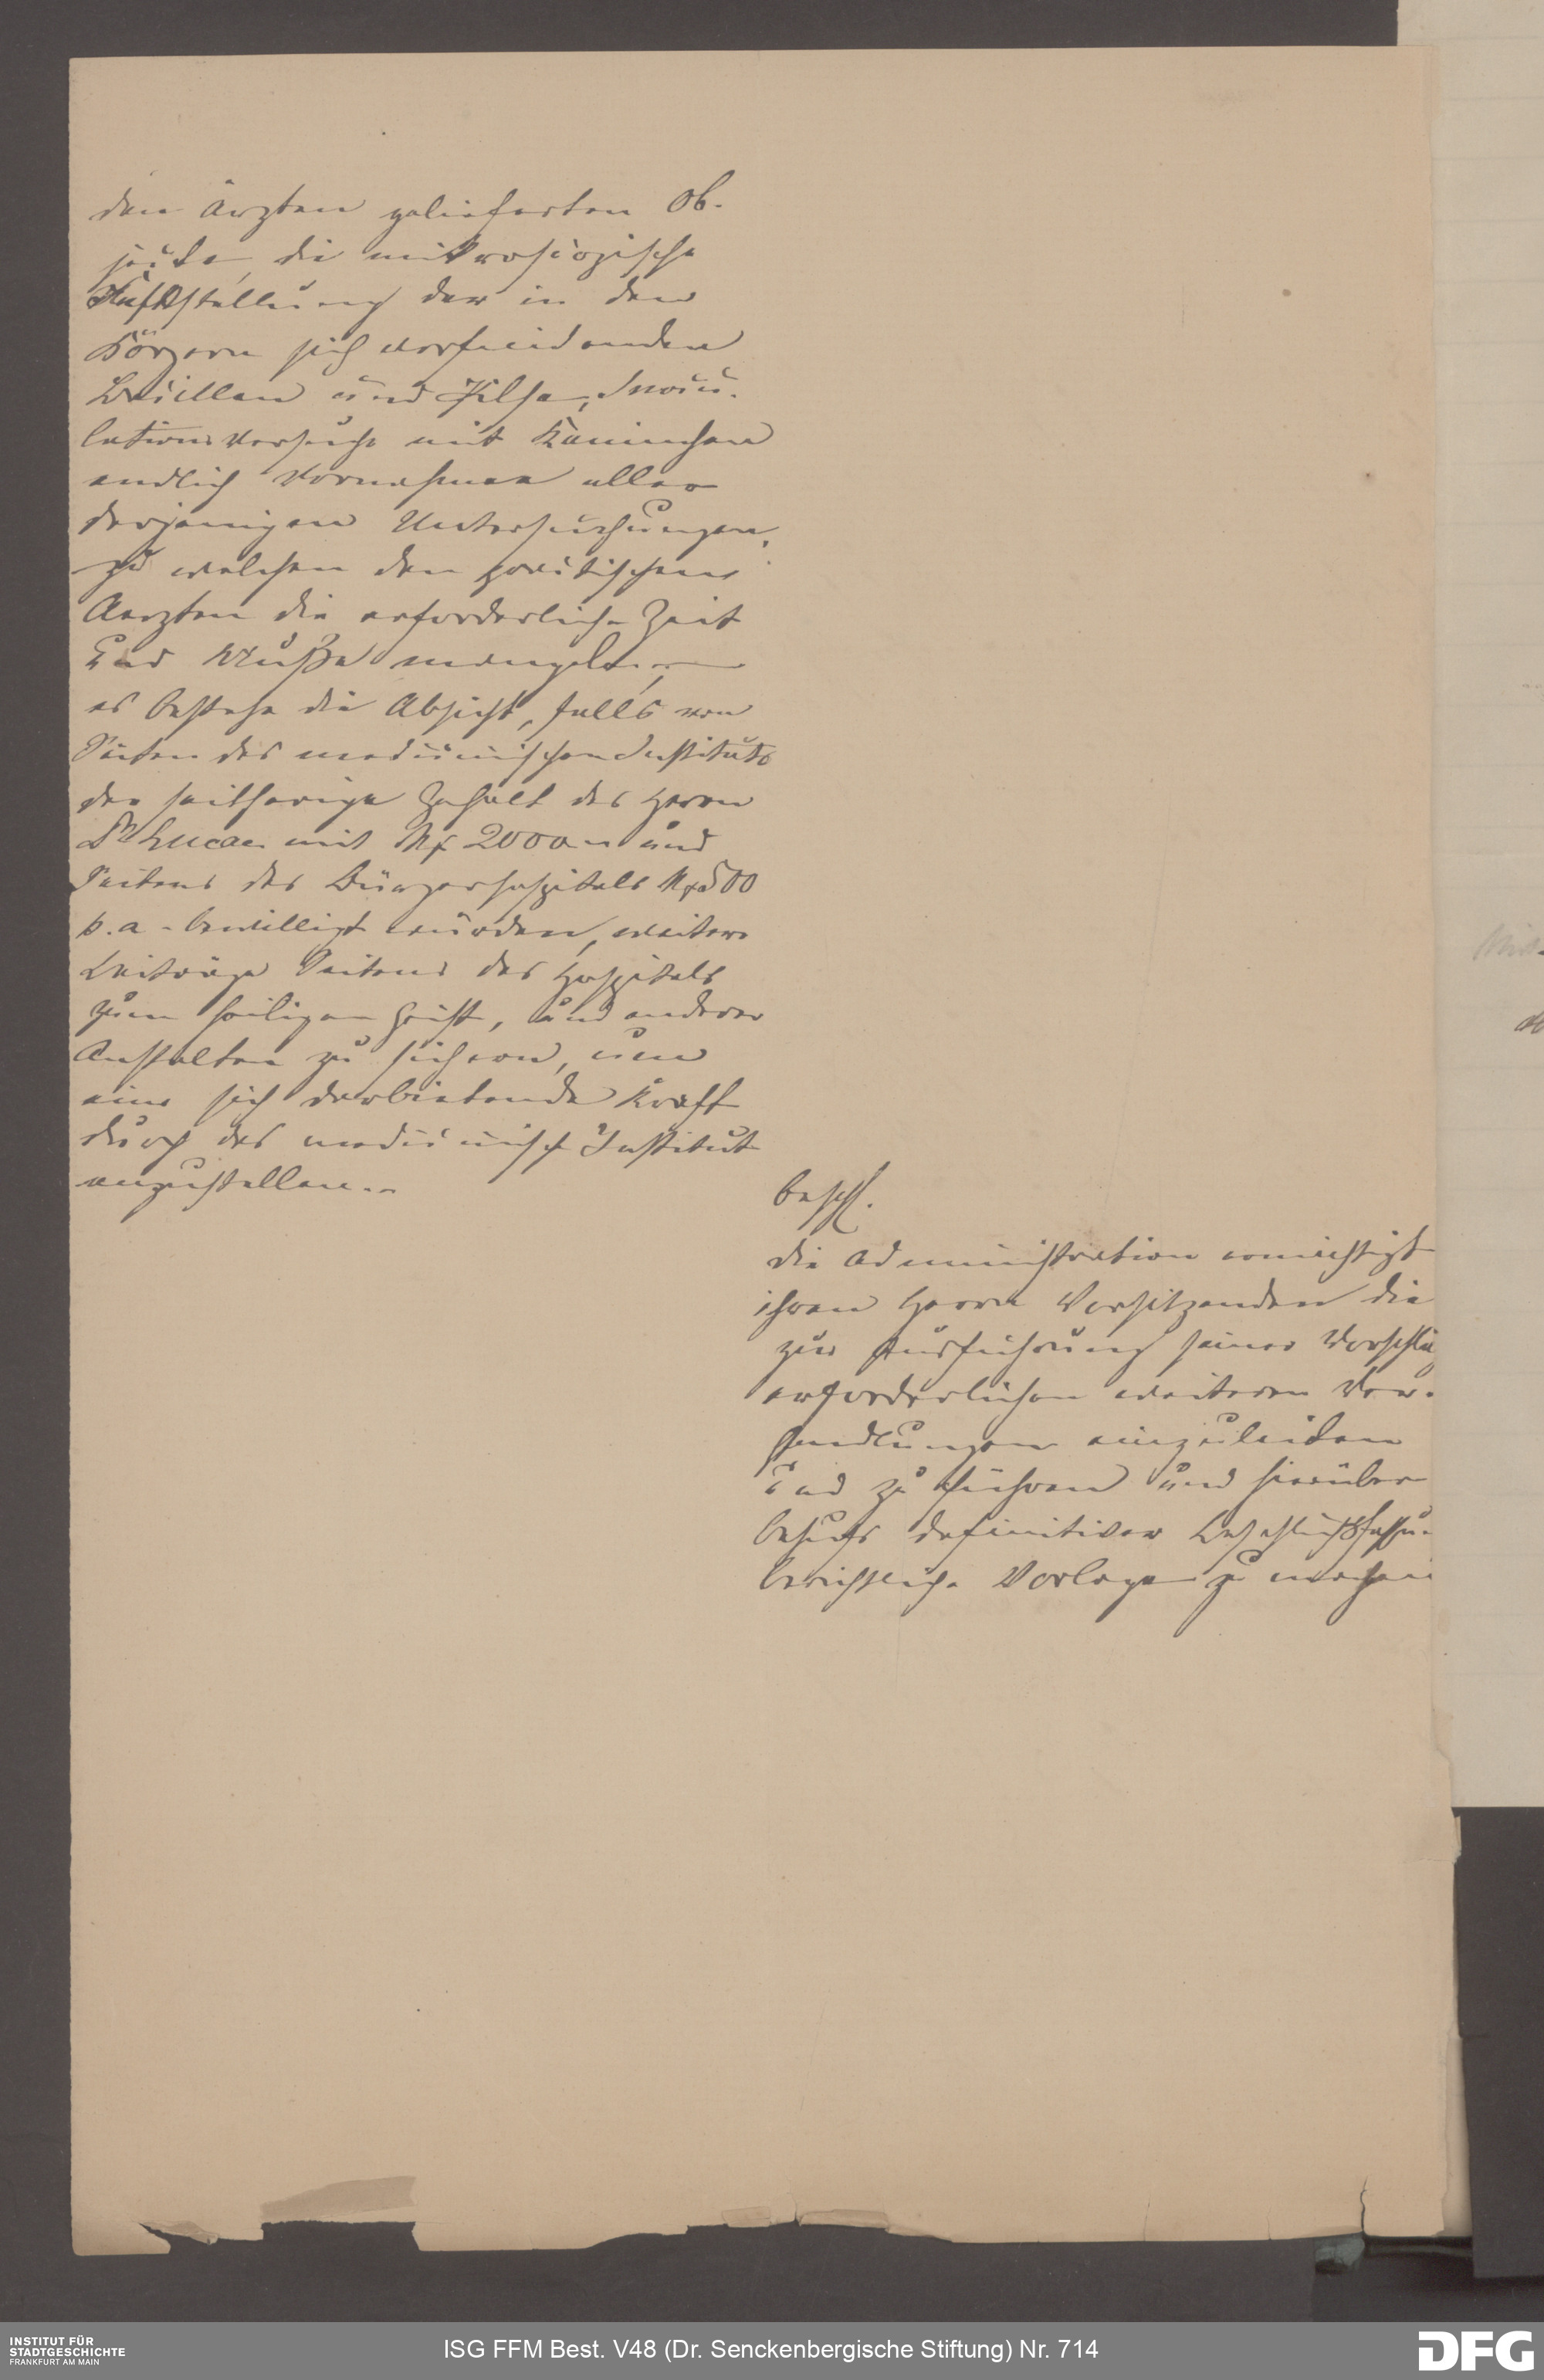 den Ärzten gelieferten Ob-
jecte, die mikroscopische
Festellung der in den
Körpern sich vorfindenden
Bacillen und Pilse, Inocu-
lationsversuche mit Kaninchen
endlich Vornahme aller
derjenigen Untersuchungen,
zu welchen den practischen
Aerzten die erforderliche Zeit
und Muße mangeln,
es bestehe die Absicht, falls von
Seiten des medicinischen Instituts
der seitherige Gehalt des Herrn
Dr Lucae mit M 2000 und
Seitens des Bürgerhospitals M 500
p.a. bewilligt würden, weitere
Beiträge Seitens des Hospitals
zum heiligen Geist, und anderer
Anstalten zu sichern, um
eine sich darbietende Kraft
durch das medicinisch Institut
anzustellen.
beschl.
die Administration ermächtigt
ihren Herrn Vorsitzenden die
zur Ausführung seiner Vorschläg
erforderlichen weiteren Ver-
handlungen einzuleiten
und zu führen und hierüber
behufs definitiver Beschlußfassu-
berichtliche Vorlage zu machen
INSTITUT FÜR
STADTGESCHICHTE
FRANKFURT AM MAIN
ISG FFM Best. V48 (Dr. Senckenbergische Stiftung) Nr. 714
DFG